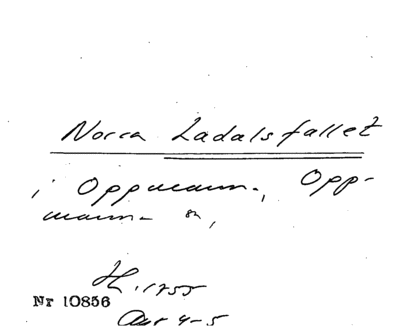 Norra Ladalsfallet
i Oppmann-, Opp-
mann- sn,
H. 1755
Nr 10856
Akt 4-5